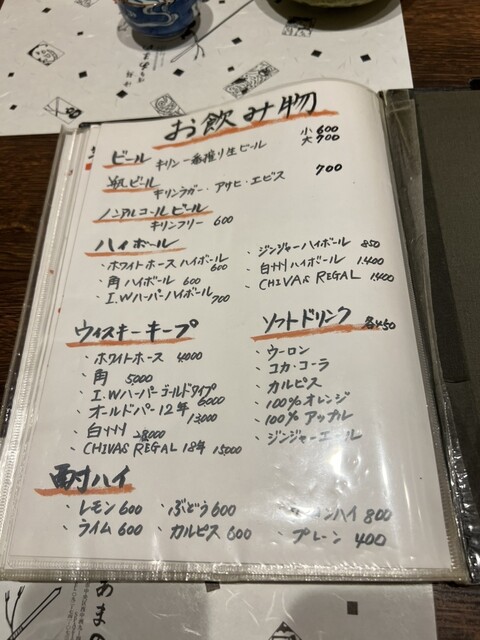 お飲み物
ビール キリン一番搾り生ビール 小 600
大 700
瓶ビール キリンラガー・アサヒ・エビス 700
ノンアルコールビール
キリンフリー 600
ハイボール
・ホワイトホースハイボール 600
・角ハイボール 600
・I.Wハーパーハイボール 700
・ジンジャーハイボール 850
・白州ハイボール 1,400
・CHIVAS REGAL 1,400
ウィスキーキープ
・ホワイトホース 4,000
・角 5,000
・I.Wハーパーゴールドタイプ 6,000
・オールドパー12年 13,000
・白州 28,000
・CHIVAS REGAL 18年 15,000
ソフトドリンク 各450
・ウーロン
・コカ・コーラ
・カルピス
・100%オレンジ
・100%アップル
・ジンジャーエール
酎ハイ
・レモン 600 ・ぶどう 600 ンハイ 800
・ライム 600 ・カルピス 600 ・プレーン 400
あまの